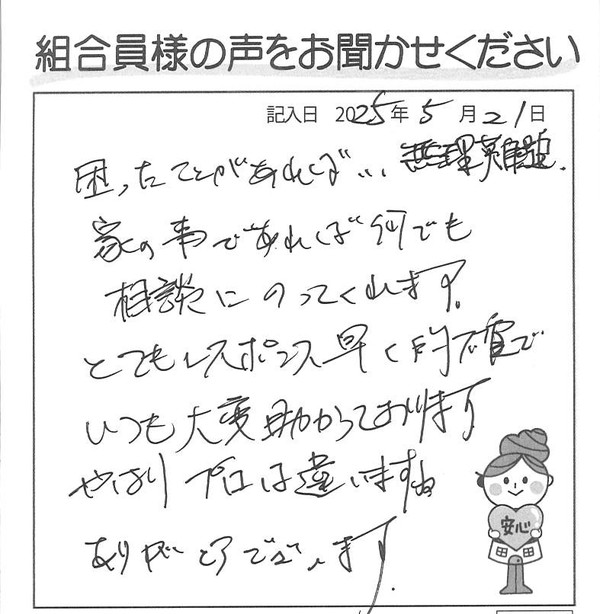 組合員様の声をお聞かせください
記入日 2025年5月21日
困ったことがあれば… 無理難題.
家の事であれば何でも
相談にのってくれます。
とてもレスポンス早く的確で
いつも大変助かっております
やはりプロは違いますね
ありがとうございます.
安心